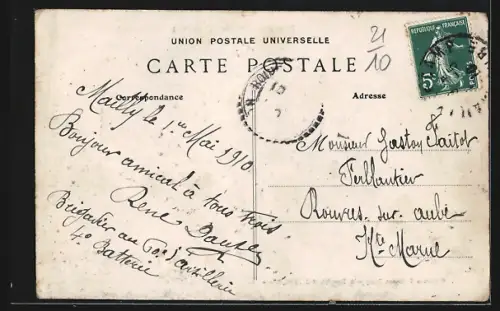 UNION POSTALE UNIVERSELLE
CARTE POSTALE
21/10
REPUBLIQUE FRANÇAISE
5c
Correspondance
Adresse
Mailly le 1er Mai 1910
Bonjour amical à tous
René
Brigadier au artillerie
4e Batterie
Monsieur Gaston
Ferblantier
Rouvres-sur-aube
Hte Marne